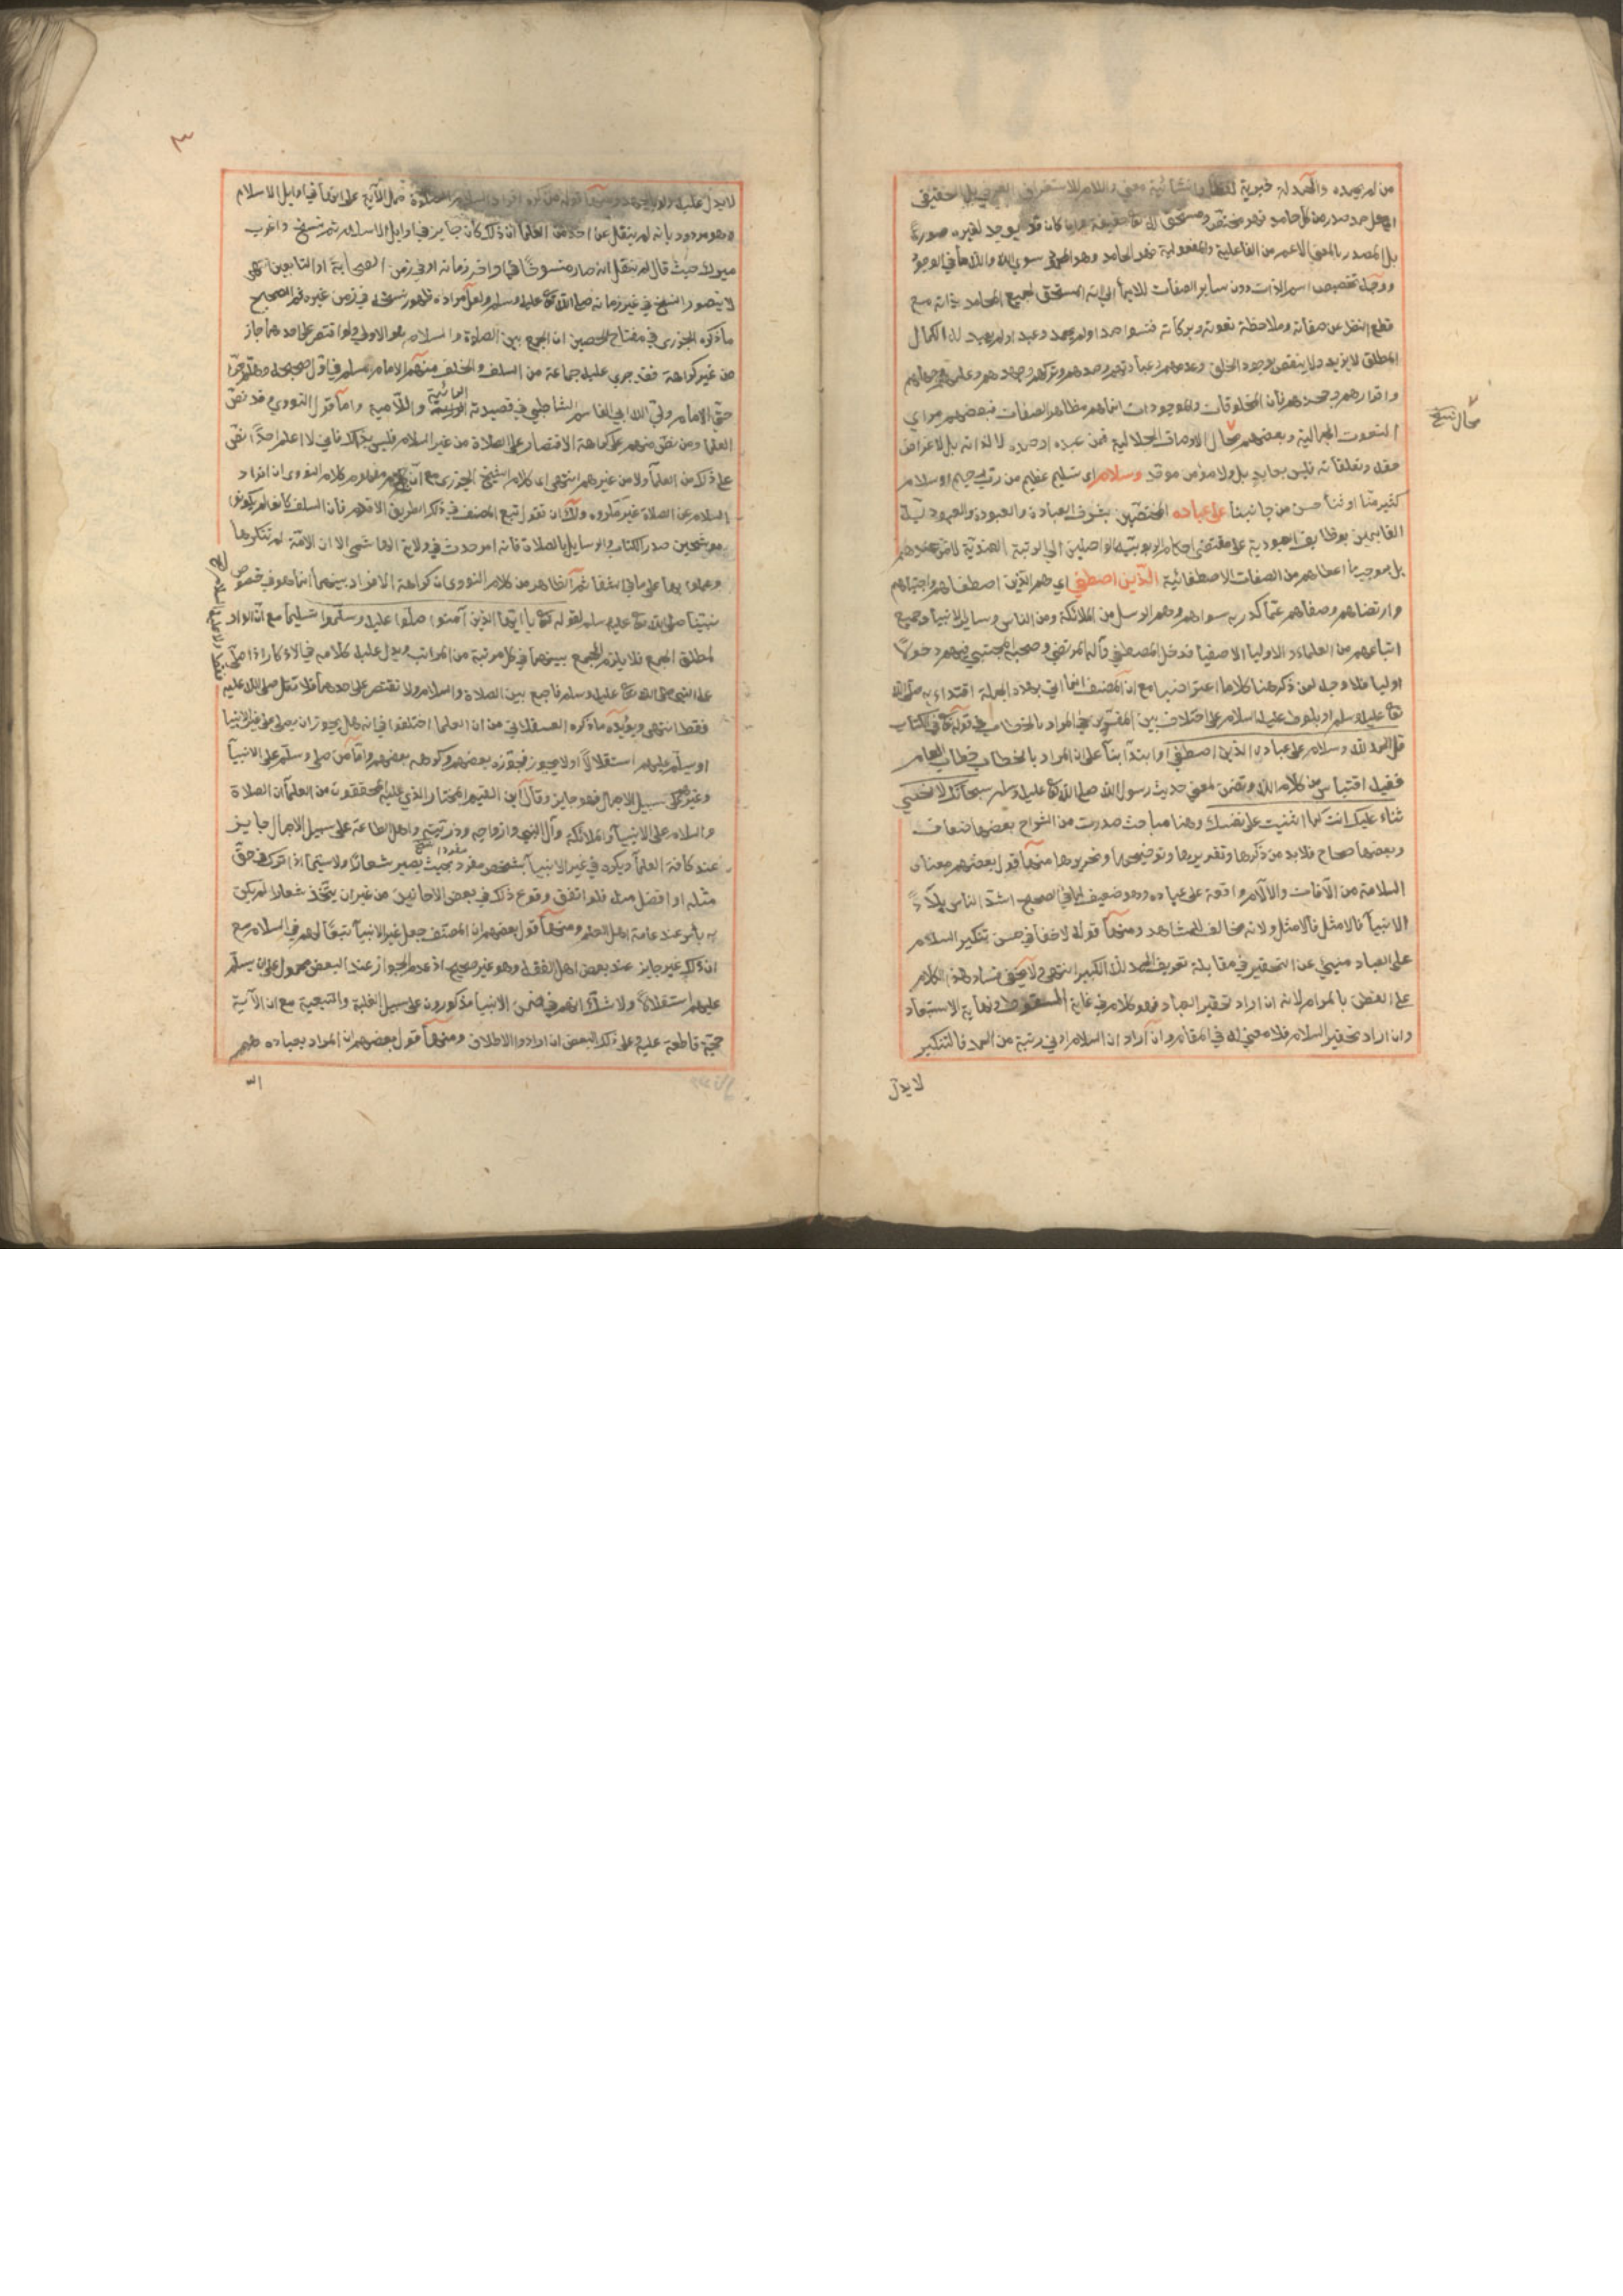 من لم يحمده والحمدلة خبرية لفظا وانشائية معنى واللام للاستغراق العرفي بل الحقيقي
اي كل حمد صدر من كل حامد فهو مختص ومستحق لله تعالى حقيقة وان كان قد يوجد لغيره صورة
بل المصدر بالمعنى الاعم من الفاعلية والمفعولية فهو الحامد وهو المحمود سوى الله والله ما في الوجود
ووجه تخصيص اسم الذات دون ساير الصفات للايما الى انه المستحق لجميع المحامد بذاته مع
قطع النظر عن صفاته وملاحظة نعوته وبركاته فسواء حمد او لم يحمد وعبد او لم يعبد له الكمال
المطلق لا يزيد ولا ينقص بوجود الخلق وعدمهم وعبادتهم وحمدهم وتركهم وجهدهم وعلمهم وجهلهم
واقرارهم وجحدهم فان المخلوقات والموجودات انما هم مظاهر الصفات فبعضهم مرائي
النعوت الجمالية وبعضهم محال الاوصاف الجلالية فمن عبده او حمده لا لذاته بل لاغراض
حقه وتعلقاته فليس بعابد بل ولا مؤمن موحد وسلام اي تسليم عظيم من رب رحيم او سلام
كثير منا او ثناء حسن من جانبنا على عباده المختصين بشرف العبادة والعبودة والعبودية
القايمين بوظايف العبودية على مقتضى احكام الربوبية الواصلين الى المرتبة العندية لا من عندهم
بل بموجب ما اعطاهم من الصفات الاصطفائية الذين اصطفى اي هم الذين اصطفاهم واجتباهم
وارتضاهم وصفاهم عما كدر به سواهم وهم الرسل من الملائكة ومن الناس وساير الانبياء وجميع
اتباعهم من العلماء والاوليا الاصفيا فدخل المصطفى وآله المرتضى وصحبه المجتبى فيهم دخولا
اوليا فلا وجه لمن ذكر هنا كلاما اعتراضيا مع ان المصنف انما اتى بهذه الجملة اقتداء به صلى الله
تعالى عليه وسلم او بلوط عليه السلام على اختلاف بين المفسرين في المراد بالخطاب في قوله تعالى في الكتاب
قل الحمد لله وسلام على عباده الذين اصطفى او ابتداء بناء على ان المراد بالخطاب خطاب العام
ففيه اقتباس من كلام الله وتضمن لمعنى حديث رسول الله صلى الله تعالى عليه وسلم سبحانك لا نحصي
ثناء عليك انت كما اثنيت على نفسك وهنا مباحث صدرت من الشراح بعضها ضعاف
وبعضها صحاح فلا بد من ذكرها وتقديرها وتوضيحها وتحريرها منها قول بعضهم معناه
السلامة من الآفات والآلام واقعة على عباده وهو ضعيف لما في الصحيح اشد الناس بلاء
الانبيا فالامثل فالامثل ولانه مخالف للمشاهد ومنها قوله لا خفا في حسن تنكير السلام
على العباد منبئي عن التحقير في مقابلة تعريف الحمد لله الكبير انتهى ولا يخفى فساد هذا الكلام
على الفطن بالمرام لانه ان اراد تحقير العباد فهو كلام في غاية السقوط ونهاية الاستبعاد
وان اراد تحقير السلام فلا معنى له في المقام وان اراد ان السلام ادنى رتبة من الحمد فالتنكير
لا يدل
محال نسخ
٣
لا يدل عليه
ومنها قوله من كره افراد السلام عن الصلاة حمل الآية على انها في اوايل الاسلام
وهو مردود بانه لم ينقل عن احد من العلما ان ذلك كان جايزا في اوايل الاسلام ثم نسخ واغرب
ميرك حيث قال لم ينقل انه صار منسوخا في اواخر زمانه او في زمن الصحابة او التابعين انتهى
لا يتصور النسخ في غير زمانه صلى الله تعالى عليه وسلم ولعل مراده ظهور نسخه في زمن غيره ثم الصحيح
ما ذكره الجزري في مفتاح الحصين ان الجمع بين الصلاة والسلام هو الاولى ولو اقتصر على احدهما جاز
من غير كراهة فقد جرى عليه جماعة من السلف والخلف منهم الامام مسلم في اول صحيحه وهلم جرا
حتى الامام ولي الله ابي القاسم الشاطبي في قصيدته الرائية واللامية واما قول النووي وقد نص
العلما ومن نص منهم على كراهة الاقتصار على الصلاة من غير السلام فليس بذلك فاني لا اعلم احدا نص
على ذلك من العلما ولا من غيرهم انتهى كلام الشيخ الجزري مع ان مفهوم كلام النووي ان افراد
السلام عن الصلاة غير مكروه ولك ان تقول تبع المصنف في ذكر الطريق الاقدم فان السلف كانوا لم يكونوا
موشحين صدر الكتاب والرسايل بالصلاة فانه امر حدث في ولاية الهاشمي الا ان الامة لم تنكرها
وعملوا بها على ما في الشفا ثم الظاهر من كلام النووي ان كراهة الافراد بينهما انما هو في خصوص
نبينا صلى الله تعالى عليه وسلم لقوله تعالى يا ايها الذين آمنوا صلوا عليه وسلموا تسليما مع ان الواو
لمطلق الجمع فلا يلزم الجمع بينهما في كل مرتبة من المراتب ويدل عليه كلامه في الاذكار اذا صلى
على النبي صلى الله تعالى عليه وسلم فاجمع بين الصلاة والسلام ولا تقتصر على احدهما فلا تقل صلى الله عليه
فقط انتهى ويؤيده ما ذكره العسقلاني من ان العلما اختلفوا في انه هل يجوز ان يصلى على غير الانبيا
او يسلم عليهم استقلالا او لا يجوز فجوزه بعضهم وكرهه بعضهم واما من صلى وسلم على الانبيا
وغيرهم على سبيل الاجمال فهو جايز وقال ابن القيم المختار الذي عليه المحققون من العلما ان الصلاة
والسلام على الانبيا والملائكة وآل النبي وازواجه وذريته واهل الطاعة على سبيل الاجمال جايز
عند كافة العلما ويكره في غير الانبيا بشخص مفرد بحيث يصير شعارا ولا سيما اذا ترك في حق
مثله او افضل منه فلو اتفق وقوع ذلك في بعض الاحايين من غير ان يتخذ شعارا لم يكن
به باس عند عامة اهل العلم ومنها قول بعضهم ان المصنف جعل غير الانبيا تبعا لهم في السلام مع
ان ذلك غير جايز عند بعض اهل الفقه وهو غير صحيح اذ عدم الجواز عند البعض محمول على ان يسلم
عليهم استقلالا ولا شك انهم في ضمن الانبيا مذكورون على سبيل الغلبة والتبعية مع ان الآية
حجة قاطعة عليه وعلى ذلك البعض ان ارادوا الاطلاق ومنها قول بعضهم ان المراد بعباده هم